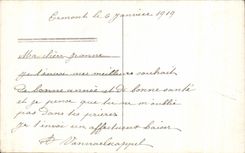 Ermont le 6 Janvier 1919
Ma chère Jeanne
Je t'envoie mes meilleurs souhaits
de bonne année et de bonne santé
et je pense que tu ne m'oublie
pas dans tes prières
Je t'envoie un affectueux baiser